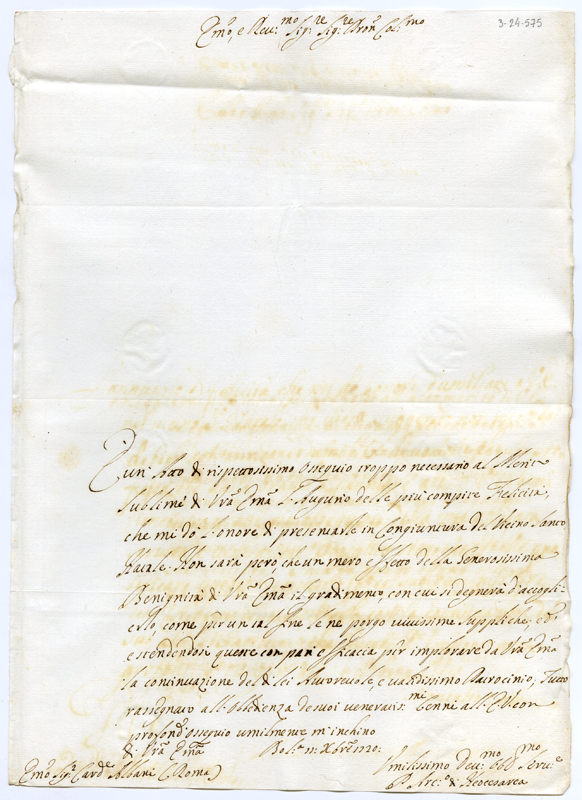 3-24-575
Emo, e Reu:mo Sig:re Sig:re Pron Col:mo
È un' Atto di rispettosissimo Ossequio troppo necessario al Merito
sublime di Vra Emza l'Augurio delle più compite Felicità,
che mi dò l'onore di presentarle in Congiuntura del Vicino Santo
Natale. Non sarà però, che un mero effetto della Generosissima
Benignità di Vra Emza il gradimento, con cui si degnerà d'accogli-
erlo, come pur un tal fine le ne porgo vivissime suppliche; e
estendendosi queste con pari efficacia per implorare da Vra Emza
la continuazione del di lei Autorevole, e validissimo Patrocinio, Tutto
rassegnato all'obbidienza de suoi veneratis:mi Cenni all' E.V. con
profondo ossequio umilmente m'inchino
di Vra Emza Bol:a Xbre 1720:
Umilissimo Deu:mo Obb:mo Seru:e
Emo Sig:r Card:e Albani (Roma)
Arc:o di Neocesarea